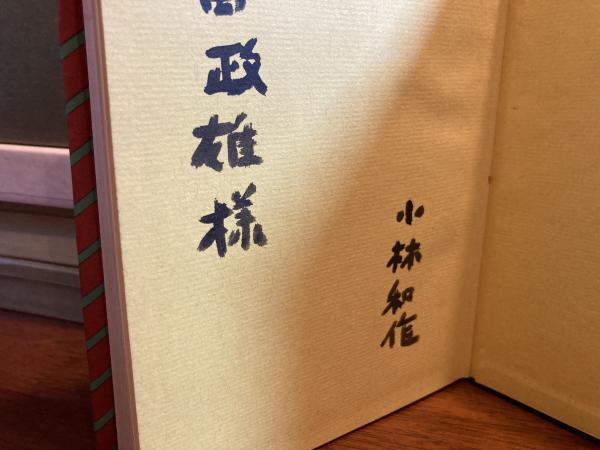 政雄様
小林和作